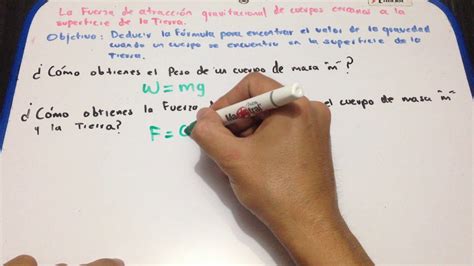 La Fuerza de atracción gravitacional de cuerpos cercanos a la
superficie de la Tierra.
Objetivo: Deducir la Fórmula para encontrar el valor de la gravedad
cuando un cuerpo se encuentra en la superficie de la
Tierra.
¿Cómo obtienes el Peso de un cuerpo de masa "m"?
W=mg
¿Cómo obtienes la Fuerza el cuerpo de masa "m"
y la Tierra?
F=